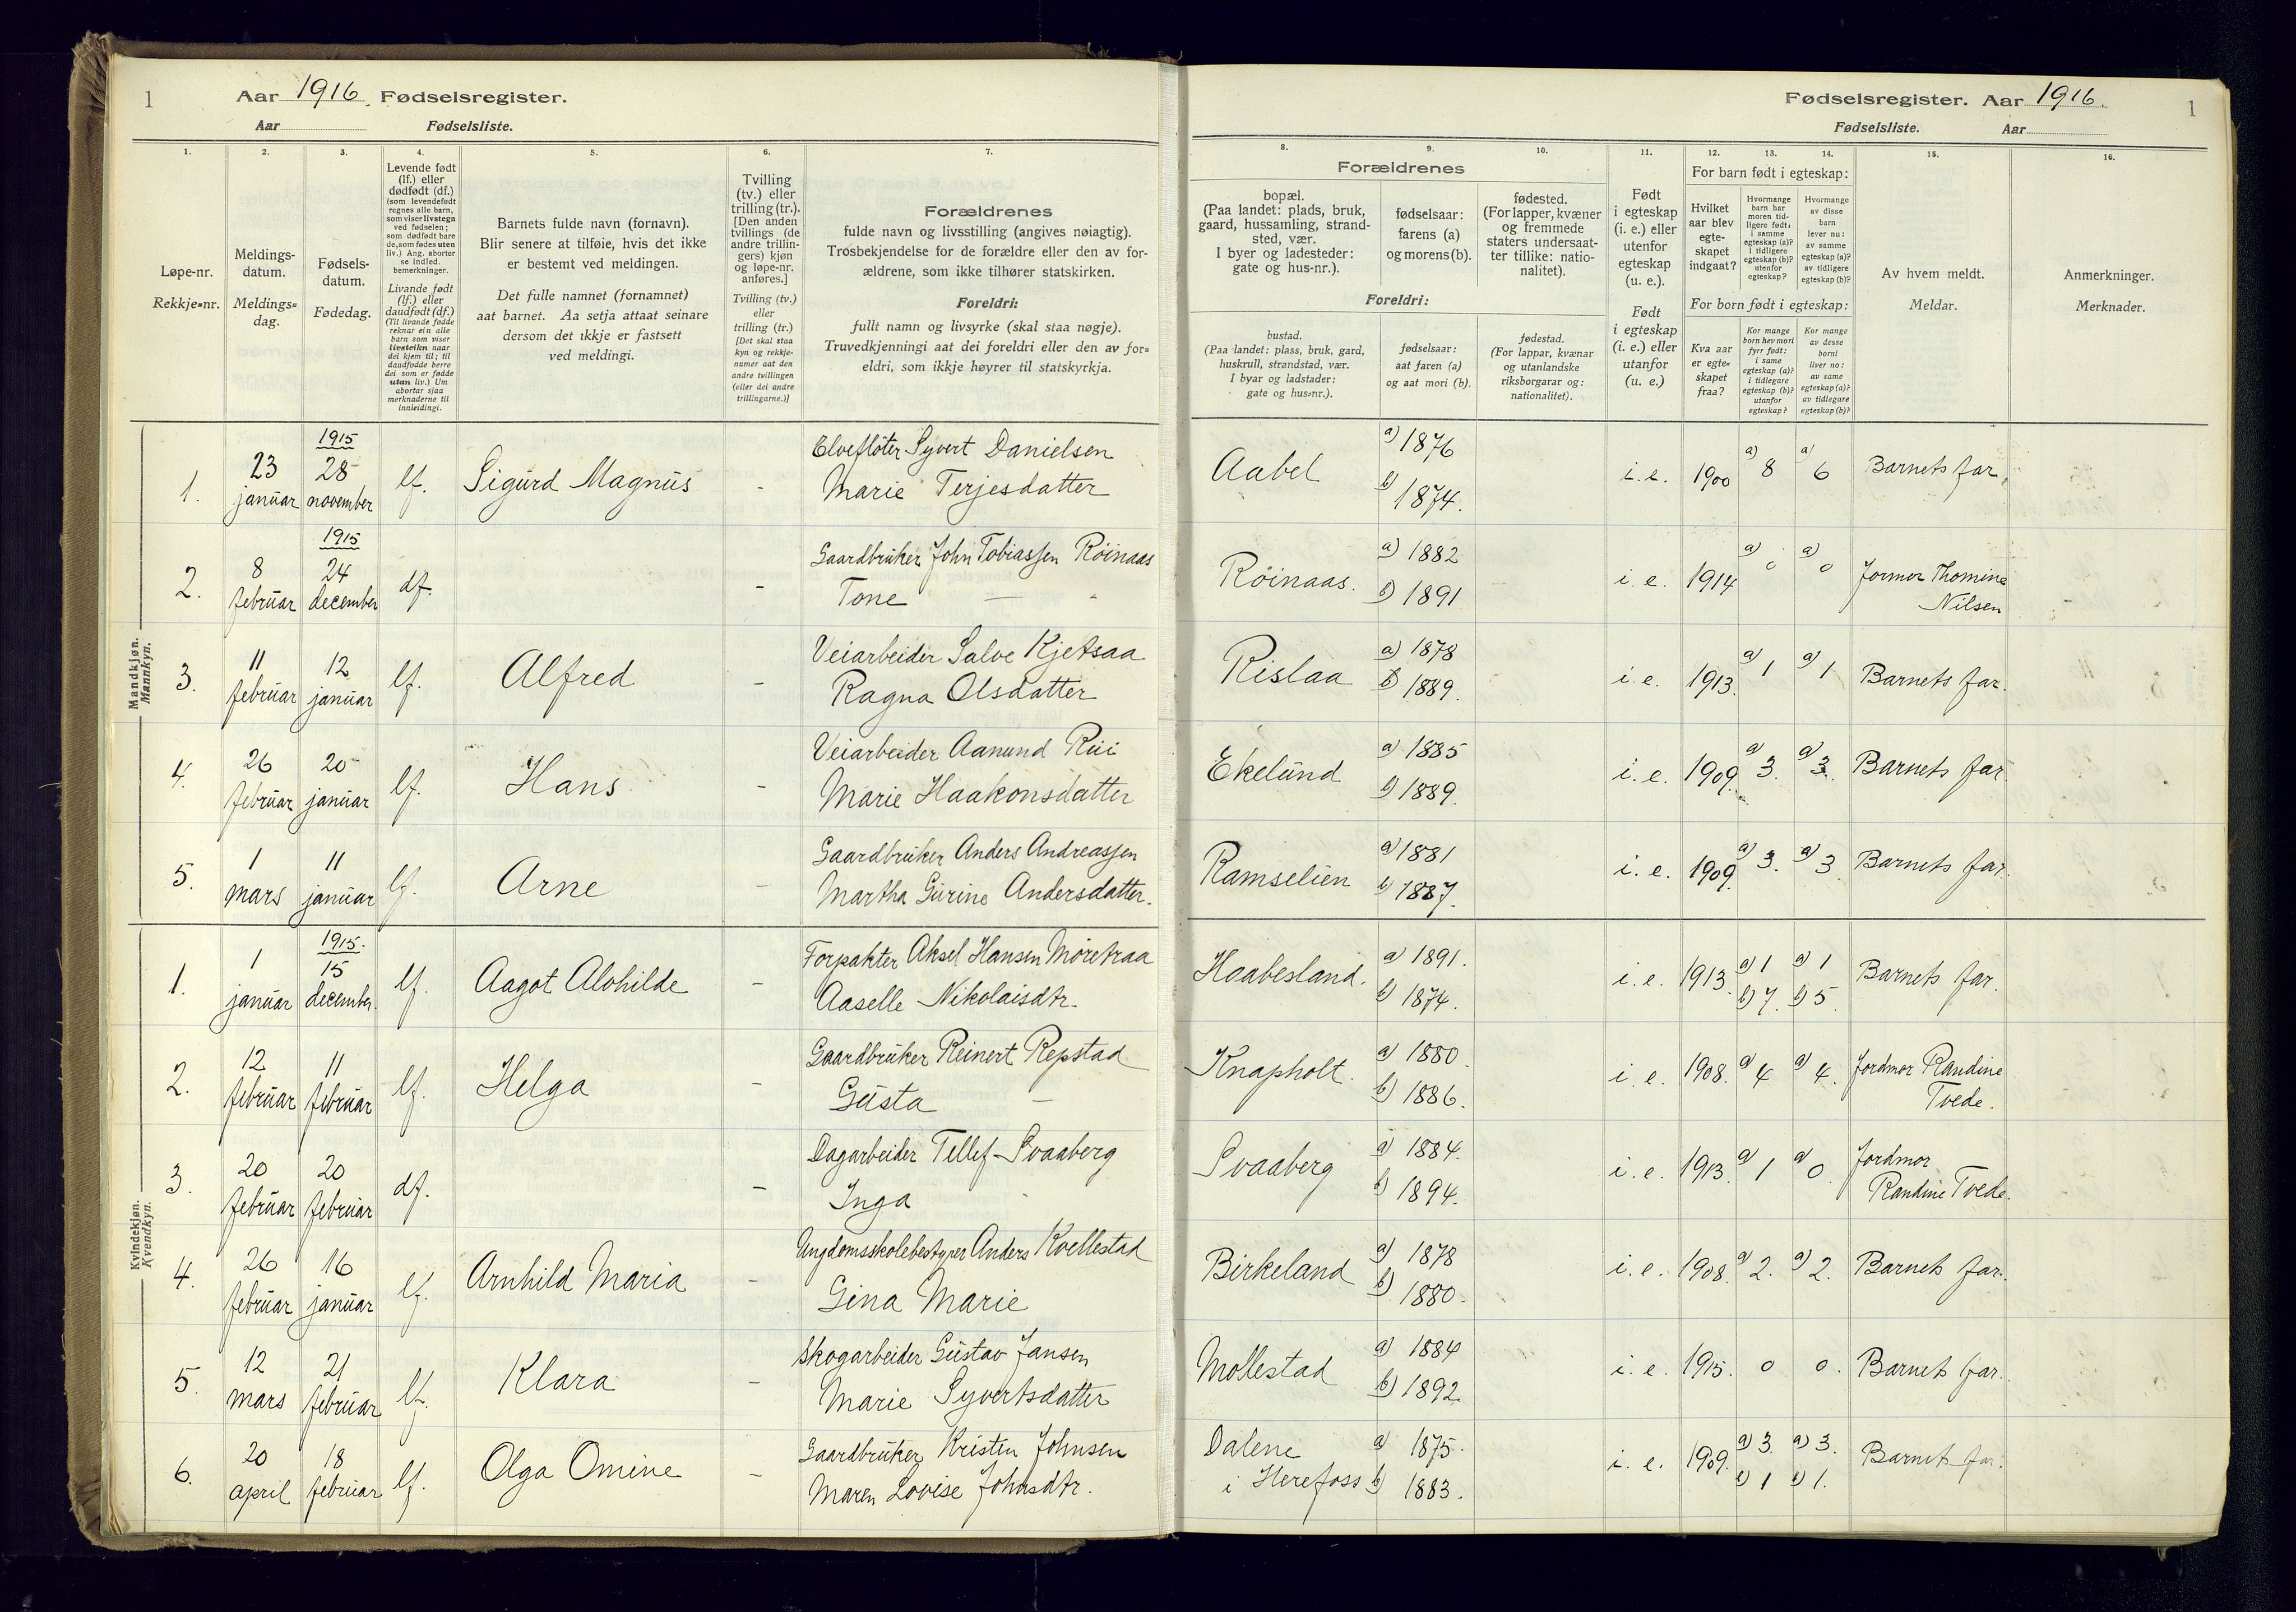 1
Aar 1916. Fødselsregister.
Aar Fødselsliste.
1. 2. 3. 4. 5. 6. 7.
Løpe-nr.
Rekkje-nr.
Meldings-
datum.
Meldings-
dag.
Fødsels-
datum.
Fødedag.
Levende født
(lf.) eller
dødfødt (df.)
(som levendefødt
regnes alle barn,
som viser livstegn
ved fødselen;
som dødfødt bare
de, som fødes uten
liv.) Ang. aborter
se indled.
bemerkninger.
Livande født
(lf.) eller
daudfødt (df.)
(Til livande fødde
reknar ein alle
barn som viser
livsteikn naar
dei kjem til; til
daudfødde berre
dei som er fødde
utan liv.) Um
abortar sjaa
merknaderne til
innleidingi.
Barnets fulde navn (fornavn).
Blir senere at tilføie, hvis det ikke
er bestemt ved meldingen.
Det fulle namnet (fornamnet)
aat barnet. Aa setja attaat seinare
dersom det ikkje er fastsett
ved meldingi.
Tvilling
(tv.) eller
trilling (tr.).
[Den anden
tvillings (de
andre trillin-
gers) kjøn
og løpe-nr.
anføres.]
Tvilling (tv.)
eller
trilling (tr.)
[Det skal staa
kyn og rekkje-
numer aat den
andre tvillingen
(eller dei andre
trillingarne.)]
Forældrenes
fulde navn og livsstilling (angives nøiagtig).
Trosbekjendelse for de forældre eller den av for-
ældrene, som ikke tilhører statskirken.
Foreldri:
fullt namn og livsyrke (skal staa nøgje).
Truvedkjenningi aat dei foreldri eller den av for-
eldri, som ikkje høyrer til statskyrkja.
Mandkjøn.
Mannkyn.
1. 23 januar 1915 28 november lf. Sigurd Magnus - Elvefløter Syvert Danielsen
Marie Terjesdatter
2. 8 februar 1915 24 december df. - Gaardbruker John Tobiassen Röinaas
Tone — "
3. 11 februar 12 januar lf. Alfred - Veiarbeider Salve Kjetsaa
Ragna Olsdatter
4. 26 februar 20 januar lf. Hans - Veiarbeider Aanund Rui
Marie Haakonsdatter
5. 1 mars 11 januar lf. Arne - Gaardbruker Anders Andreassen
Martha Gurine Andersdatter.
Kvindekjøn.
Kvendkyn.
1. 1 januar 1915. 15 december. lf. Aagot Alvhilde - Forpakter Aksel Hansen Møretraa
Aaselle Nikolaisdtr.
2. 12 februar 11 februar lf. Helga - Gaardbruker Reinert Repstad
Gusta —
3. 20 februar 20 februar df. - Dagarbeider Tellef Svaaberg
Inga
4. 26 februar 16 januar lf. Arnhild Maria - Ungdomsskolebestyrer Anders Kvellestad
Gina Marie
5. 12 mars 21 februar lf. Klara - Skogarbeider Gustav Jansen
Marie Syvertsdatter
6. 20 april 18 februar lf. Olga Omine - Gaardbruker Kristen Johnsen
Maren Lovise Johnsdtr.
Fødselsregister. Aar 1916.
1
Fødselsliste. Aar
8. 9. 10. 11. 12. 13. 14. 15. 16.
Forældrenes
bopæl.
(Paa landet: plads, bruk,
gaard, hussamling, strand-
sted, vær.
I byer og ladesteder:
gate og hus-nr.).
fødselsaar:
farens (a)
og morens (b).
fødested.
(For lapper, kvæner
og fremmede
staters undersaat-
ter tillike: natio-
nalitet).
Foreldri:
bustad.
(Paa landet: plass, bruk, gard,
huskrull, strandstad, vær.
I byar og ladstader:
gate og hus-nr.).
fødselsaar:
aat faren (a)
og aat mori (b).
fødestad.
(For lappar, kvænar
og utanlandske
riksborgarar og:
nationalitet).
Født
i egteskap
(i. e.) eller
utenfor
egteskap
(u. e.).
Født
i egteskap
(i. e.) eller
utanfor
(u. e.)
For barn født i egteskap:
Hvilket
aar blev
egte-
skapet
indgaat?
Hvormange
barn har
moren tid-
ligere født,
i samme
egteskap (a)?
i tidligere
egteskap (b)?
utenfor
egteskap?
Hvormange
av disse
barn
lever nu:
av samme
egteskap (a)?
av tidligere
egteskap (b)?
For born født i egteskap:
Kva aar
er egte-
skapet
fraa?
Kor mange
born hev mori
fyrr født:
i same
egteskap (a)?
i tidlegare
egteskap (b)?
utanfor
egteskap?
Kor mange
av desse
borni
liver no:
av same
egteskap (a)?
av tidlegare
egteskap (b)?
Av hvem meldt.
Meldar.
Anmerkninger.
Merknader.
Aabel a) 1876 b) 1874. i. e. 1900 a) 8 a) 6 Barnets far.
Röinaas. a) 1882 b) 1891 i. e. 1914 a) 0 a) 0 Jormor Thomine
Nilsen
Rislaa a) 1878 b) 1889. i. e. 1913. a) 1 a) 1 Barnets far.
Ekelund a) 1885 b) 1889. i. e. 1909. a) 3. a) 3. Barnets far.
Ramselien a) 1881 b) 1887. i. e. 1909. a) 3. a) 3 Barnets far.
Haabesland. a) 1891. b) 1874. i. e. 1913. a) 1 b) 7. a) 1 b) 5. Barnets far.
Knapholt. a) 1880. b) 1886. i. e. 1908. a) 4 a) 4. Jordmor Randine
Tvede.
Svaaberg a) 1884. b) 1894. i. e. 1913. a) 1 a) 0. Jordmor
Randine Tvede.
Birkeland a) 1878 b) 1880. i. e. 1908. a) 2. a) 2. Barnets far.
Mollestad a) 1884 b) 1892 i. e. 1915. 0 0. Barnets far.
Dalene
i Herefoss a) 1875. b) 1883. i. e. 1909. a) 3. b) 1 a) 3. b) 1. Barnets far.